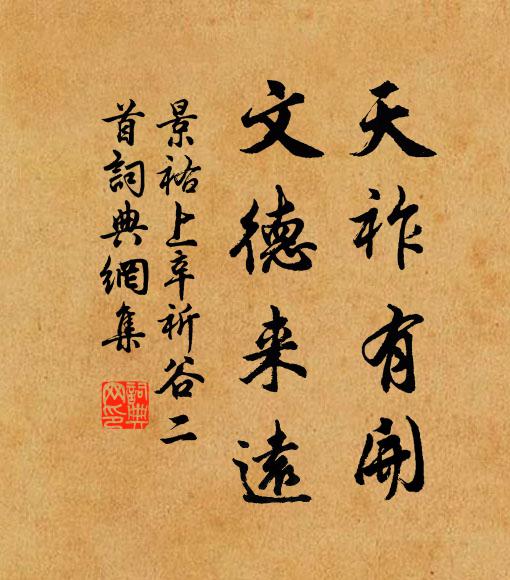 天祚有開
文德来遠
景祐上辛祈谷二
首詞典網集
詞典
网印